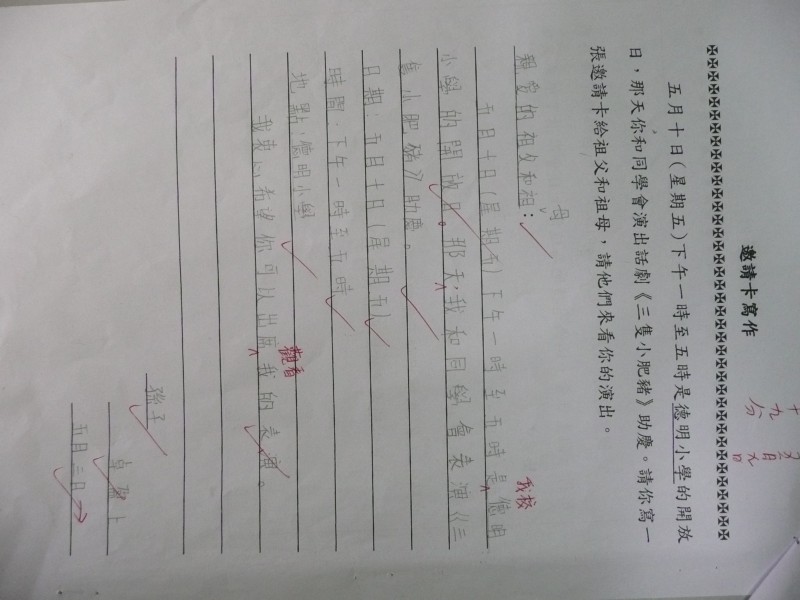 邀請卡寫作
✠✠✠✠✠✠✠✠✠✠✠✠✠✠✠✠✠✠✠✠✠✠✠✠✠✠✠✠✠✠✠✠✠✠✠
五月十日(星期五)下午一時至五時是德明小學的開放
日，那天你和同學會演出話劇《三隻小肥豬》助慶。請你寫一
張邀請卡給祖父和祖母，請他們來看你的演出。
十九分
五月九日
母
親愛的祖父和祖：
五月十日(星期五)下午一時至五時是德明
我校
小學的開放日。那天，我和同學會表演《三
隻小肥豬》助慶。
日期：五月十日(星期五)
時間：下午一時至五時
地點：德明小學
觀看
我衷心希望你可以出席我的表演。
孫子
上
五月三日